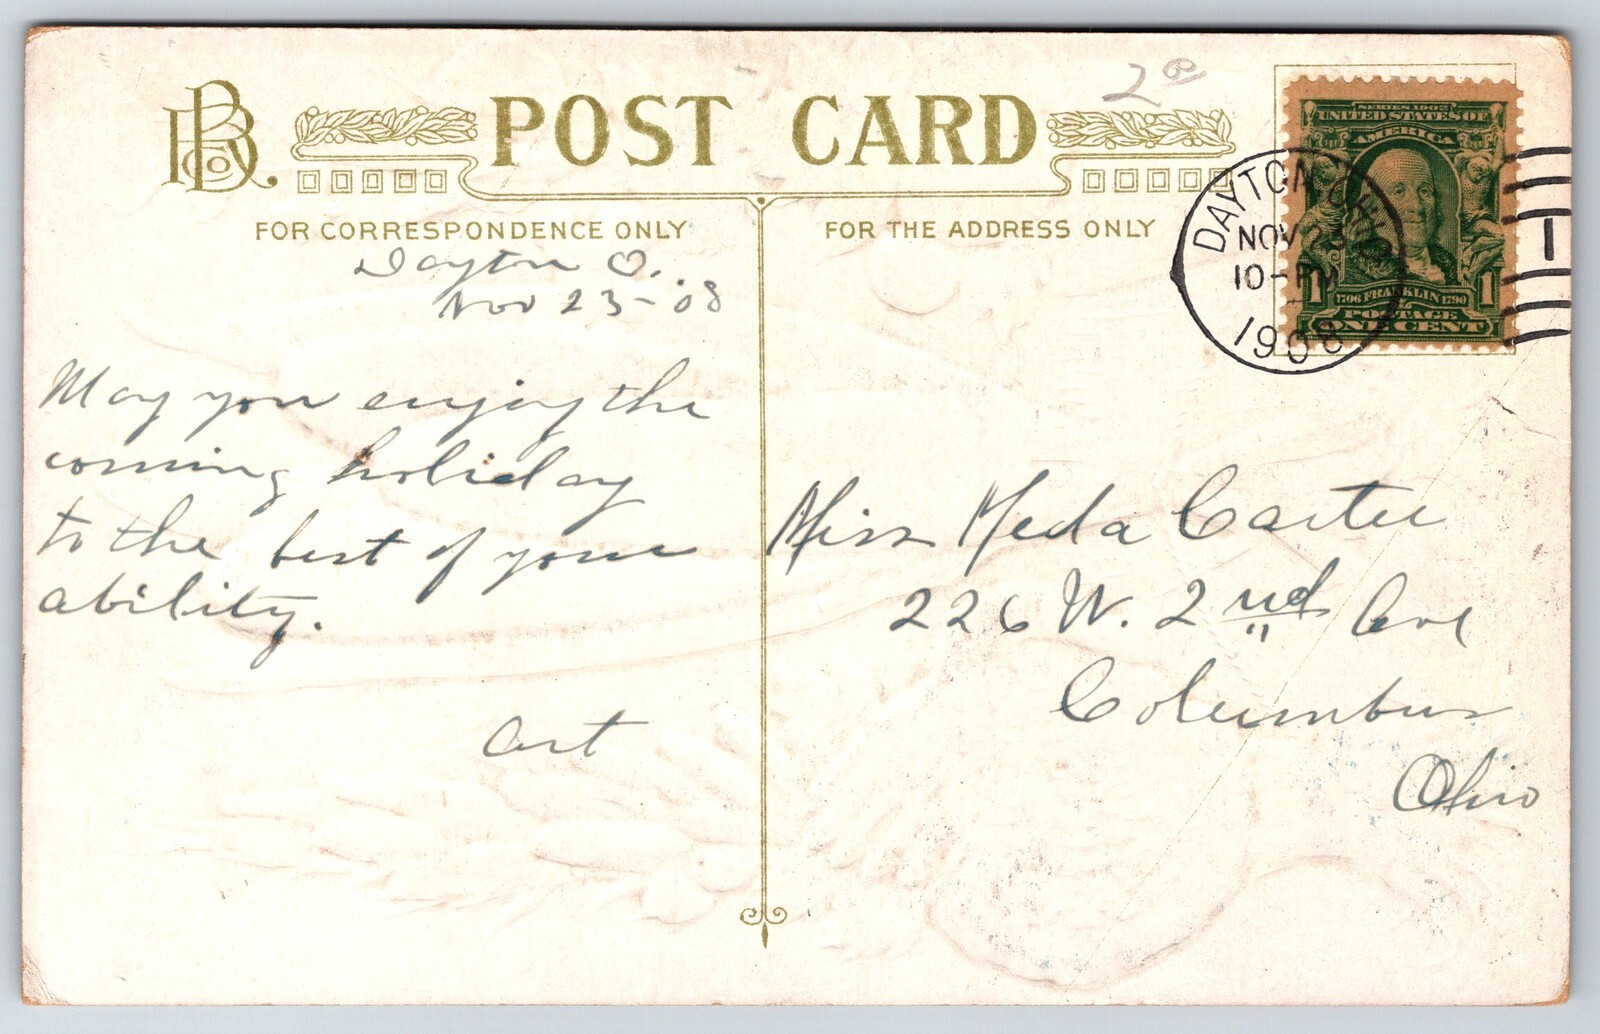 BD Co.
POST CARD
2 00
FOR CORRESPONDENCE ONLY
FOR THE ADDRESS ONLY
SERIES 1902
UNITED STATES OF
AMERICA
1706 FRANKLIN 1790
1 1
POSTAGE
ONE CENT
DAYTON, OHIO
NOV 23
10-PM
1908
1
Dayton O.
Nov 23-'08
May you enjoy the
coming holiday
to the best of your
ability.
Art
Miss Meda Carter
226 W. 2nd Ave
Columbus
Ohio